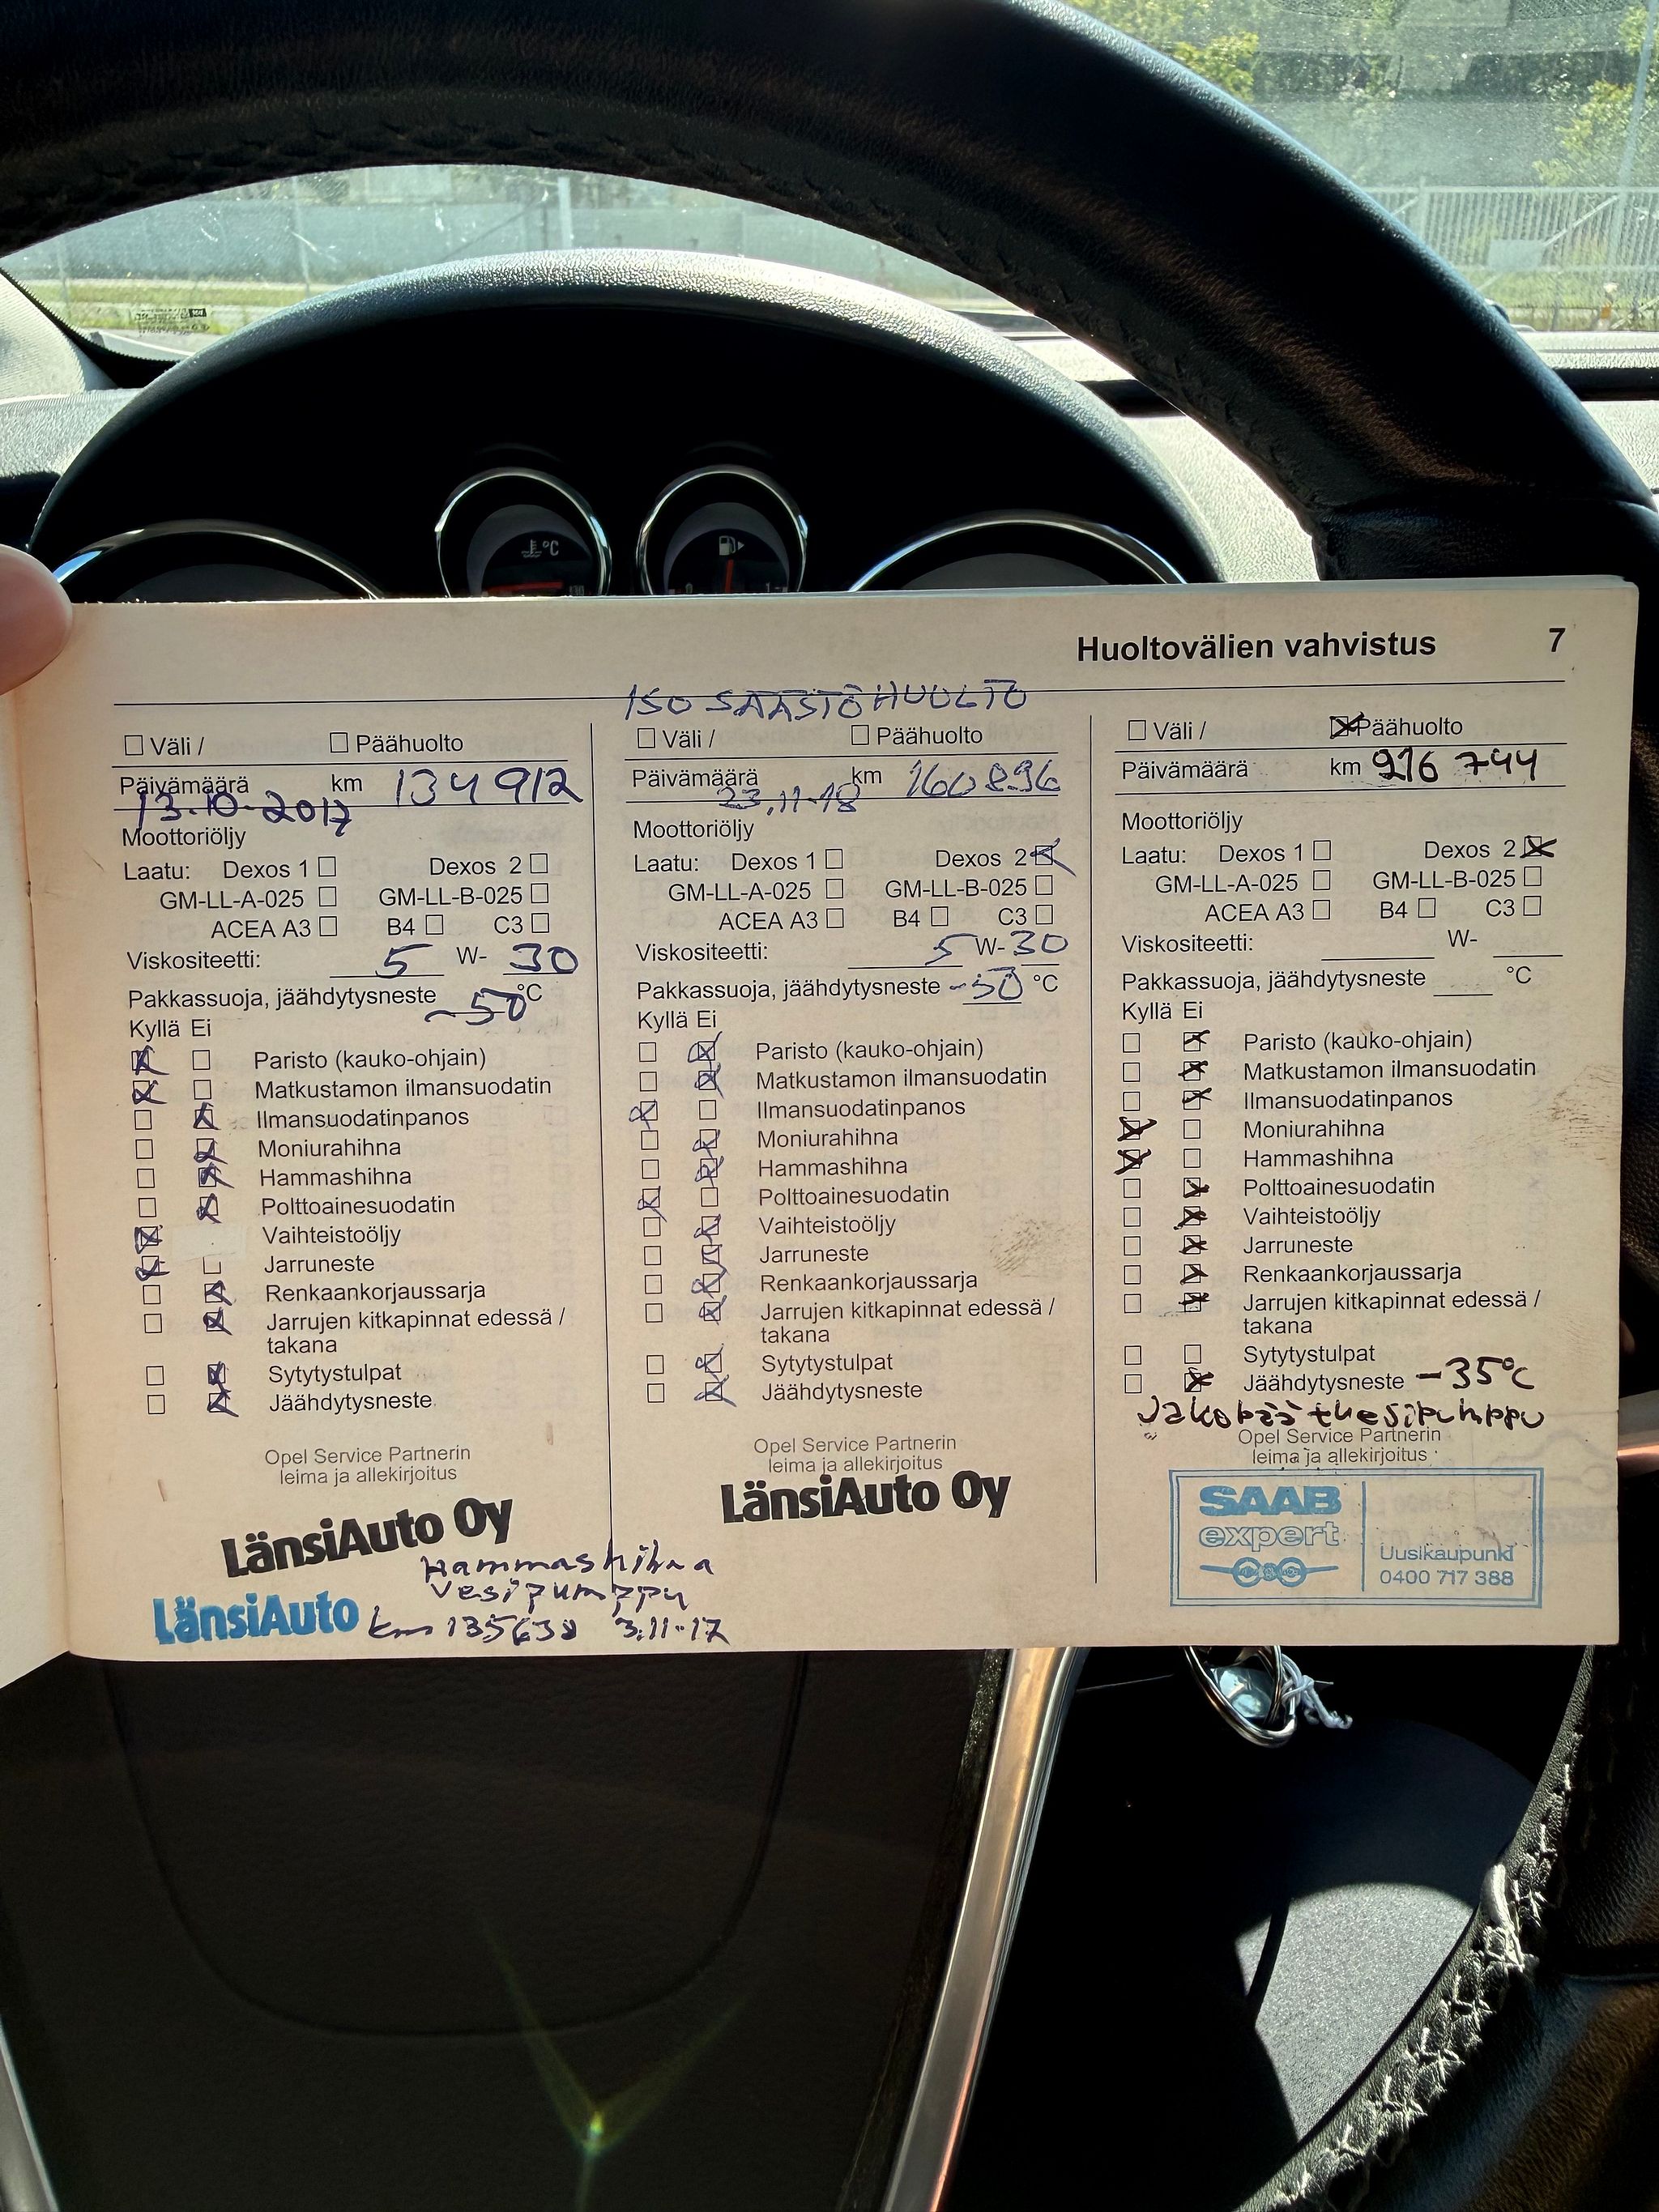 Huoltovälien vahvistus 7
☐ Väli / ☐ Päähuolto
Päivämäärä km 134 912
13.10-2017
Moottoriöljy
Laatu: Dexos 1 ☐ Dexos 2 ☐
GM-LL-A-025 ☐ GM-LL-B-025 ☐
ACEA A3 ☐ B4 ☐ C3 ☐
Viskositeetti: 5 W- 30
Pakkassuoja, jäähdytysneste -50 °C
Kyllä Ei
☒ ☐ Paristo (kauko-ohjain)
☒ ☐ Matkustamon ilmansuodatin
☐ ☒ Ilmansuodatinpanos
☐ ☒ Moniurahihna
☐ ☒ Hammashihna
☐ ☒ Polttoainesuodatin
☒ Vaihteistoöljy
☒ ☐ Jarruneste
☐ ☒ Renkaankorjaussarja
☐ ☒ Jarrujen kitkapinnat edessä /
takana
☐ ☒ Sytytystulpat
☐ ☒ Jäähdytysneste
Opel Service Partnerin
leima ja allekirjoitus
LänsiAuto Oy
LänsiAuto
Hammashihna
Vesipumppu
km 135638 3.11-17
ISO SÄÄSTÖHUOLTO
☐ Väli / ☐ Päähuolto
Päivämäärä km 160 896
23.11-18
Moottoriöljy
Laatu: Dexos 1 ☐ Dexos 2 ☒
GM-LL-A-025 ☐ GM-LL-B-025 ☐
ACEA A3 ☐ B4 ☐ C3 ☐
Viskositeetti: 5 W- 30
Pakkassuoja, jäähdytysneste -50 °C
Kyllä Ei
☐ ☒ Paristo (kauko-ohjain)
☐ ☒ Matkustamon ilmansuodatin
☒ ☐ Ilmansuodatinpanos
☐ ☒ Moniurahihna
☐ ☒ Hammashihna
☒ ☐ Polttoainesuodatin
☐ ☒ Vaihteistoöljy
☐ ☒ Jarruneste
☐ ☒ Renkaankorjaussarja
☐ ☒ Jarrujen kitkapinnat edessä /
takana
☐ ☒ Sytytystulpat
☐ ☒ Jäähdytysneste
Opel Service Partnerin
leima ja allekirjoitus
LänsiAuto Oy
☐ Väli / ☒ Päähuolto
Päivämäärä km 216 744
Moottoriöljy
Laatu: Dexos 1 ☐ Dexos 2 ☒
GM-LL-A-025 ☐ GM-LL-B-025 ☐
ACEA A3 ☐ B4 ☐ C3 ☐
Viskositeetti: W-
Pakkassuoja, jäähdytysneste °C
Kyllä Ei
☐ ☒ Paristo (kauko-ohjain)
☐ ☒ Matkustamon ilmansuodatin
☐ ☒ Ilmansuodatinpanos
☒ ☐ Moniurahihna
☒ ☐ Hammashihna
☐ ☒ Polttoainesuodatin
☐ ☒ Vaihteistoöljy
☐ ☒ Jarruneste
☐ ☒ Renkaankorjaussarja
☐ ☒ Jarrujen kitkapinnat edessä /
takana
☐ ☐ Sytytystulpat
☐ ☒ Jäähdytysneste -35°C
Jakopää+vesipumppu
Opel Service Partnerin
leima ja allekirjoitus
SAAB
expert
Uusikaupunki
0400 717 388